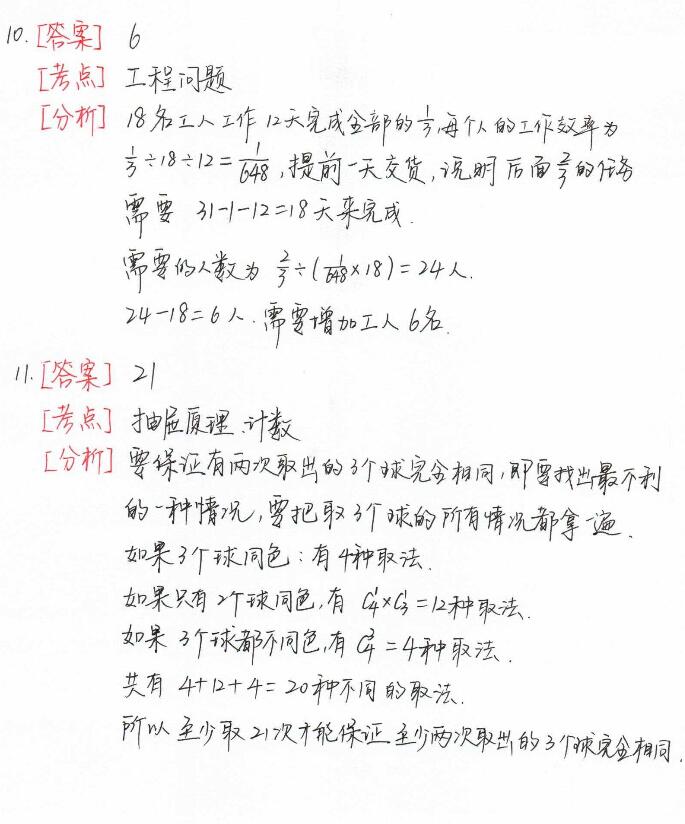 10. [答案] 6
[考点] 工程问题
[分析] 18名工人工作12天完成全部的1/3,每个人的工作效率为
1/3÷18÷12=1/648,提前一天交货,说明后面2/3的任务
需要 31-1-12=18天来完成.
需要的人数为 2/3÷(1/648×18)=24人.
24-18=6人.需要增加工人6名.
11. [答案] 21
[考点] 抽屉原理、计数
[分析] 要保证有两次取出的3个球完全相同,即要找出最不利
的一种情况,要把取3个球的所有情况都拿一遍.
如果3个球同色:有4种取法.
如果只有2个球同色,有 C¹₄×C¹₃=12种取法.
如果3个球都不同色,有 C³₄=4种取法.
共有 4+12+4=20种不同的取法.
所以至少取21次才能保证至少两次取出的3个球完全相同.